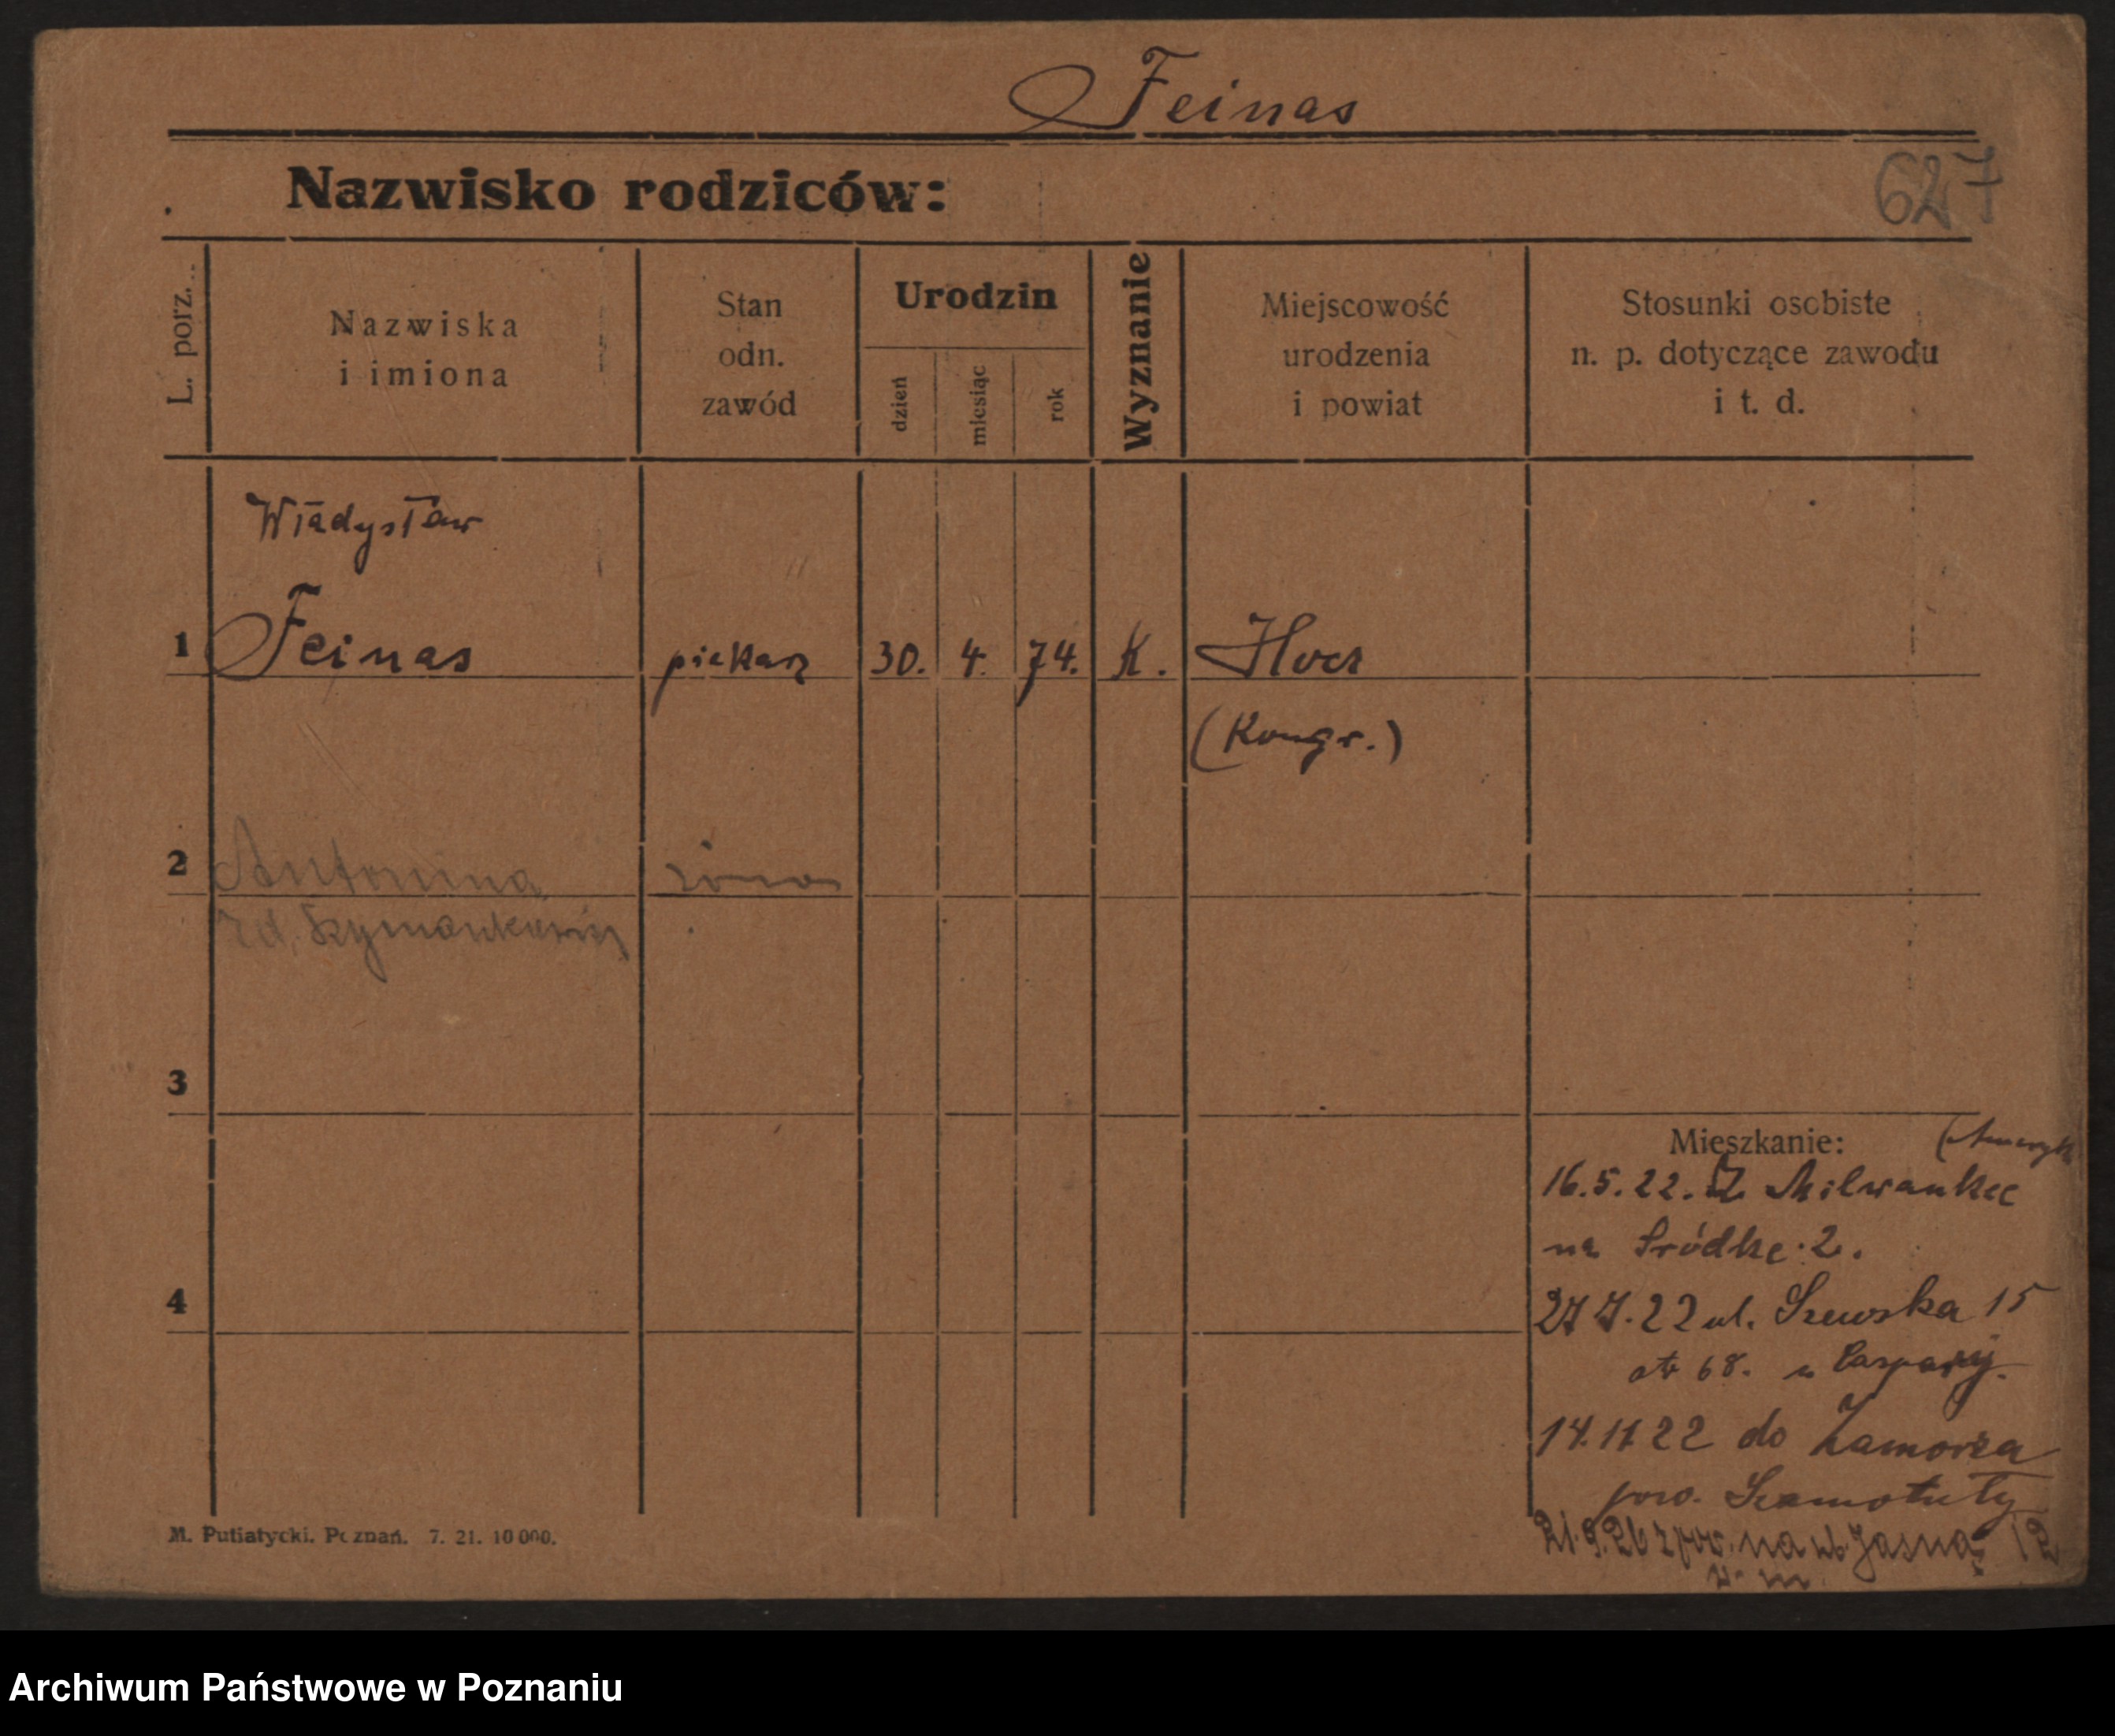 Feinas
Nazwisko rodziców:
627
L. porz.
Nazwiska
i imiona
Stan
odn.
zawód
Urodzin
dzień
miesiąc
rok
Wyznanie
Miejscowość
urodzenia
i powiat
Stosunki osobiste
n. p. dotyczące zawodu
i t. d.
Władysław
1 Feinas piekarz 30. 4. 74. K.
(Kongr.)
2 Antonina żona
3
4
Mieszkanie:
16.5.22. Z Milwaukee
na Śródke 2.
27 7.22 ul. Szewska 15
68. u
14.11 22 do Zamorza
pow. Szamotuły
21.9.26 na ul. Jasną 12
M. Putiatycki. Poznań. 7. 21. 10 000.
Archiwum Państwowe w Poznaniu